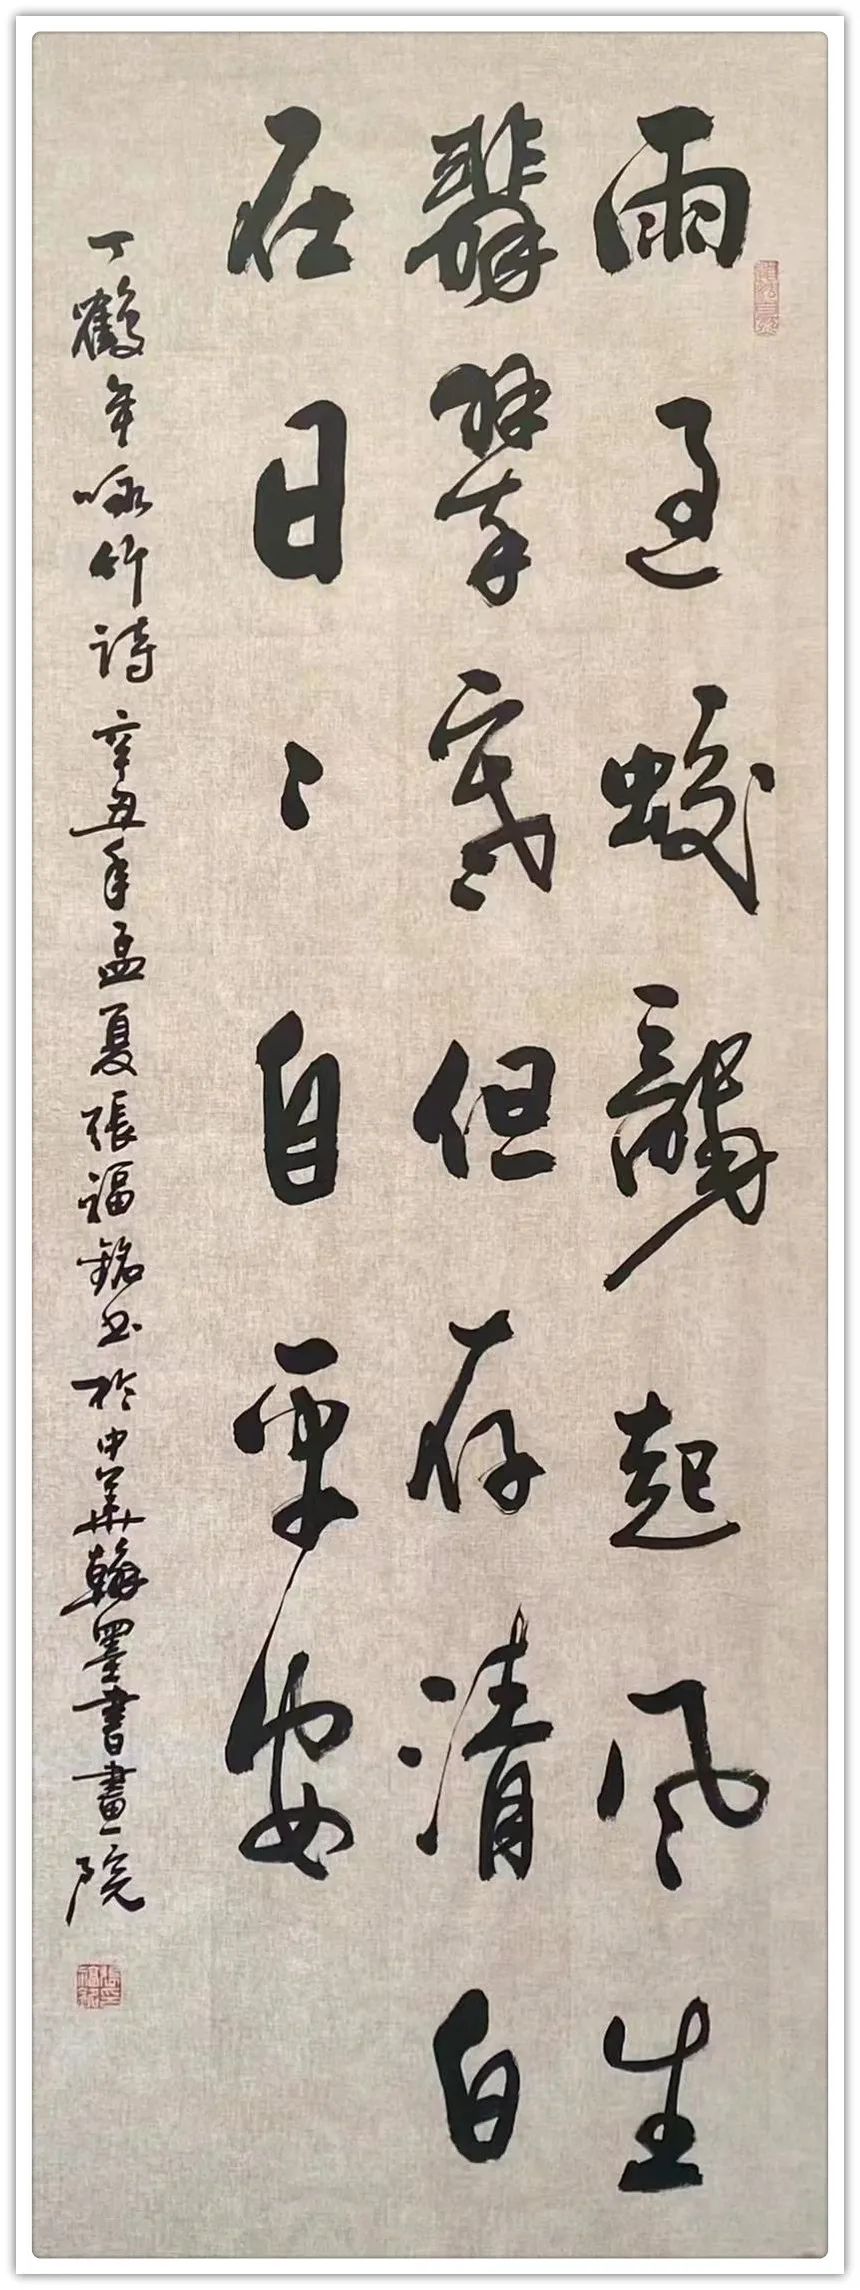 雨過蛟龍起風生
翡翠寒但存清白
在日〻自平安
丁鶴年咏竹詩辛丑年孟夏張福銘书於中華翰墨書畫院